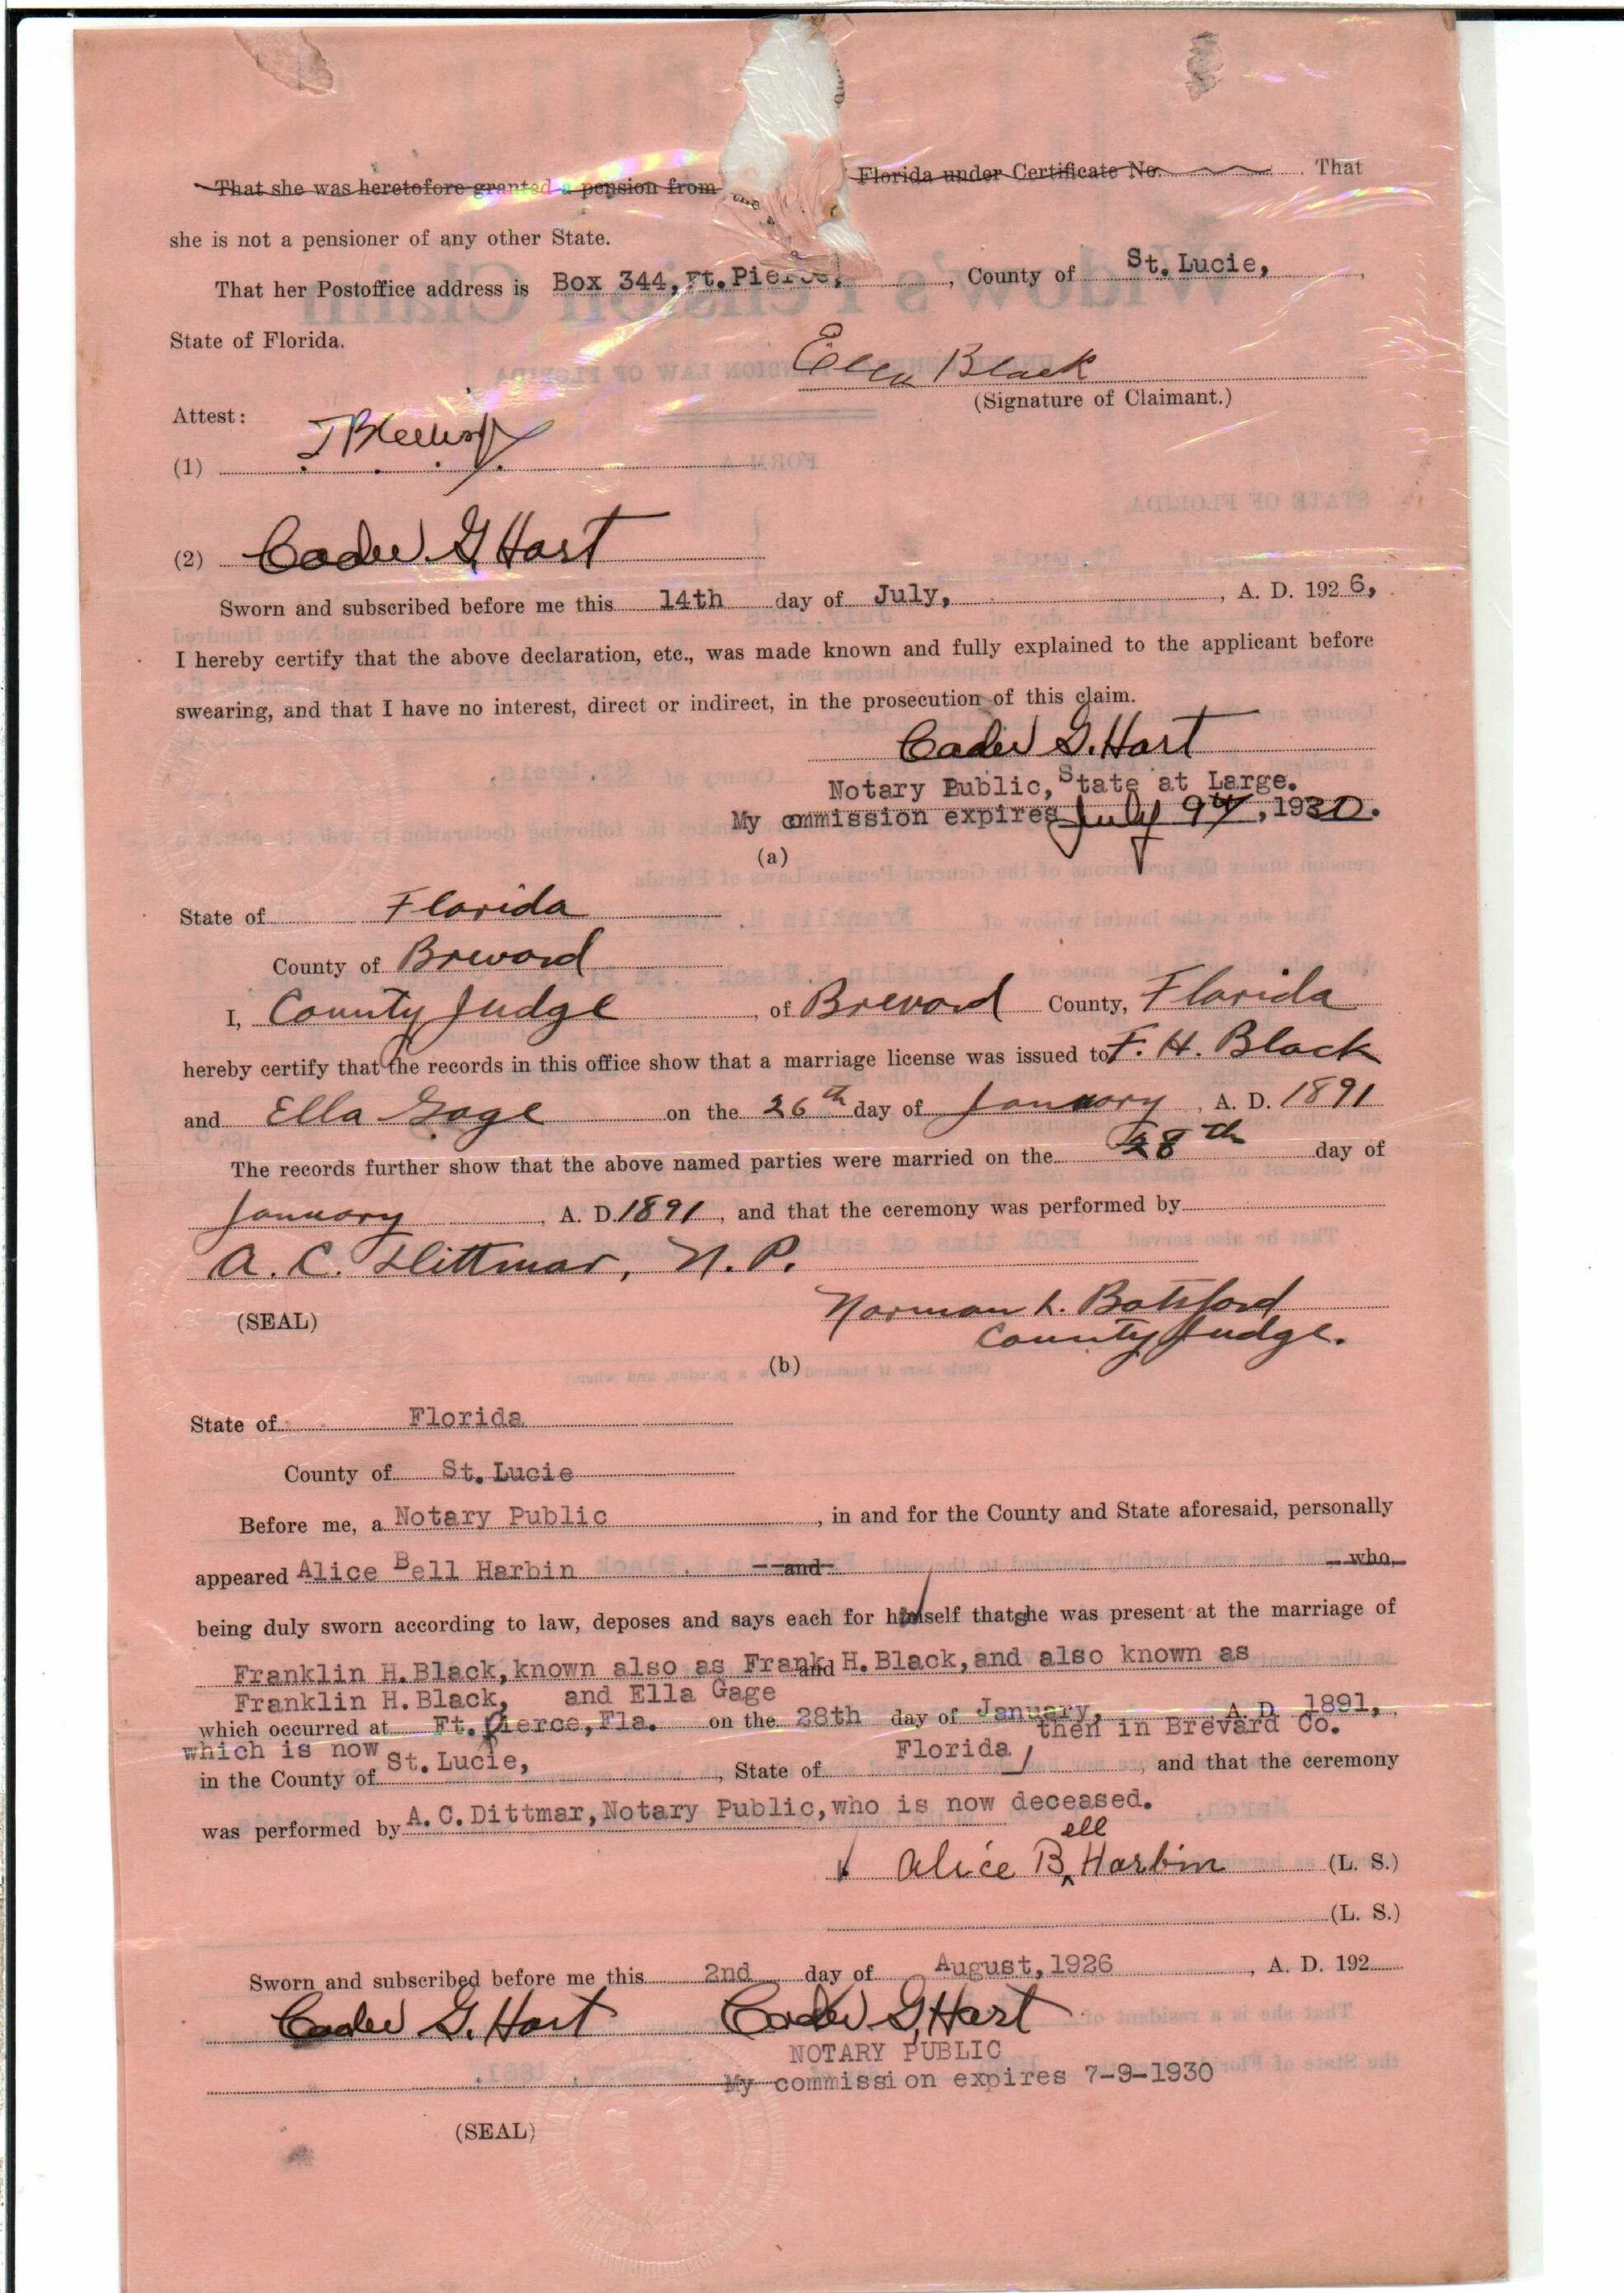 That she was heretofore granted a pension from the Florida under Certificate No. That
she is not a pensioner of any other State.
That her Postoffice address is Box 344, Ft. Pierce, , County of St. Lucie, ,
State of Florida.
Ella Black
(Signature of Claimant.)
Attest:
(1)
(2) Cader G. Hart
Sworn and subscribed before me this 14th day of July, , A. D. 192 6,
I hereby certify that the above declaration, etc., was made known and fully explained to the applicant before
swearing, and that I have no interest, direct or indirect, in the prosecution of this claim.
Cader G. Hart
Notary Public, State at Large.
My ommission expires July 9th, 1930.
(a)
State of Florida
County of Brevard
I, County Judge , of Brevard County, Florida
hereby certify that the records in this office show that a marriage license was issued to F. H. Black
and Ella Gage on the 26th day of January , A. D. 1891
The records further show that the above named parties were married on the 28th day of
January , A. D. 1891 , and that the ceremony was performed by
A. C. Dittmar, N. P.
(SEAL)
Norman L. Botsford
County Judge.
(b)
State of Florida
County of St. Lucie
Before me, a Notary Public , in and for the County and State aforesaid, personally
appeared Alice Bell Harbin and who,
being duly sworn according to law, deposes and says each for himself that she was present at the marriage of
Franklin H. Black, known also as Frank H. Black, and also known as
and
Franklin H. Black, and Ella Gage
which occurred at Ft. Pierce, Fla. on the 28th day of January, A. D. 1891,
then in Brevard Co.
which is now
in the County of St. Lucie, , State of Florida , and that the ceremony
was performed by A. C. Dittmar, Notary Public, who is now deceased.
Alice Bell Harbin (L. S.)
(L. S.)
Sworn and subscribed before me this 2nd day of August, 1926 , A. D. 192
Cader G. Hart Cader G. Hart
NOTARY PUBLIC
My commission expires 7-9-1930
(SEAL)